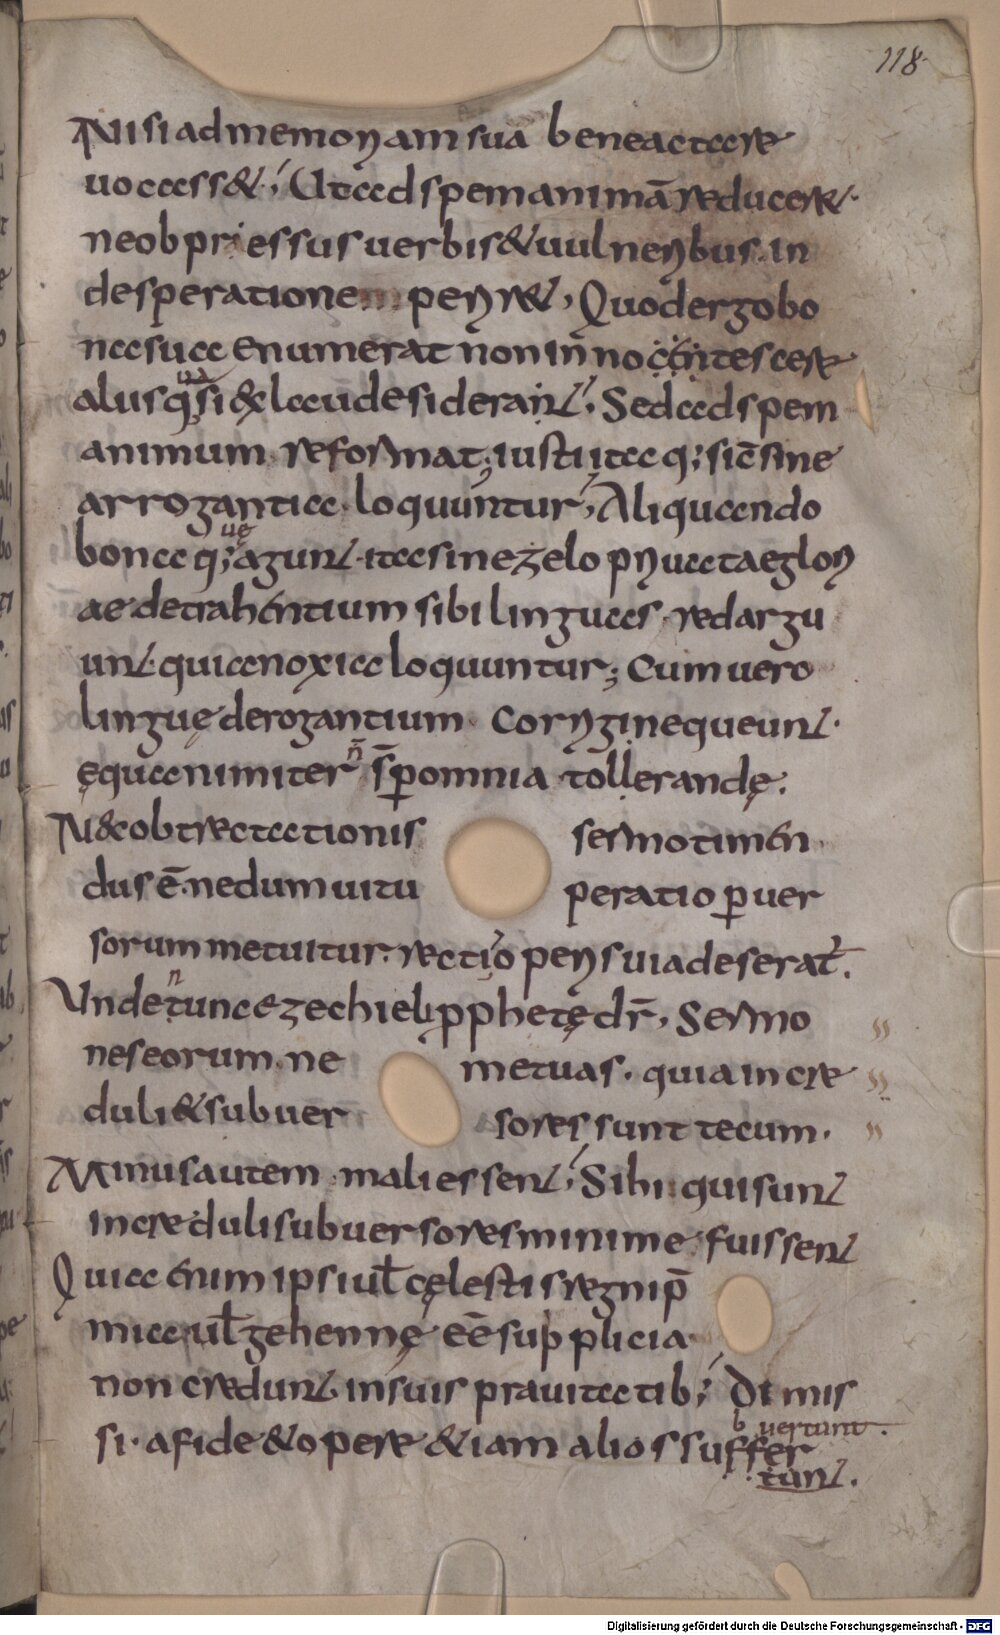 118
Nisi ad memoriam sua bene acta re
uocass&; Ut ad spem animā reducer&.
ne ob pressus uerbis & uulneribus. in
desperatione perir&, Quod ergo bo
na sua enumerat non innocentescere
aliisq; si & laude siderant; Sed ad spem
animum reformat; iusti itaq; sic sine
arrogantia. loquuntur, Aliquando
bona q; sua agunt. ita sine zelo priuatae glori
ae detrahentium sibi linguas. redargu
unt. qui a noxia loquuntur; Cum uero
linguę derogantium. Corrigi nequeunt.
ęquanimiter sp omnia tollerandę.
Nec obtrectationis sermo timen
dus ē. ne dum uitu peratio puer
sorum metuitur. recti operis uia deserat̄.
Unde nunc ezechieli pphetę dr̄, Sermo
nes eorum. ne metuas. quia incre
duli & subuer sores sunt tecum.
Minus autem. mali essent; Sibi qui sunt
increduli subuersores minime fuissent
Quia enim ipsi ul̄ cęlestis regni p̄
mia. ul̄ gehennę eē supplicia
non credunt. in suis prauitatib; Dimis
si. a fide & opere & iam alios suffer
b uertunt.
tunt.
Digitalisierung gefördert durch die Deutsche Forschungsgemeinschaft - DFG